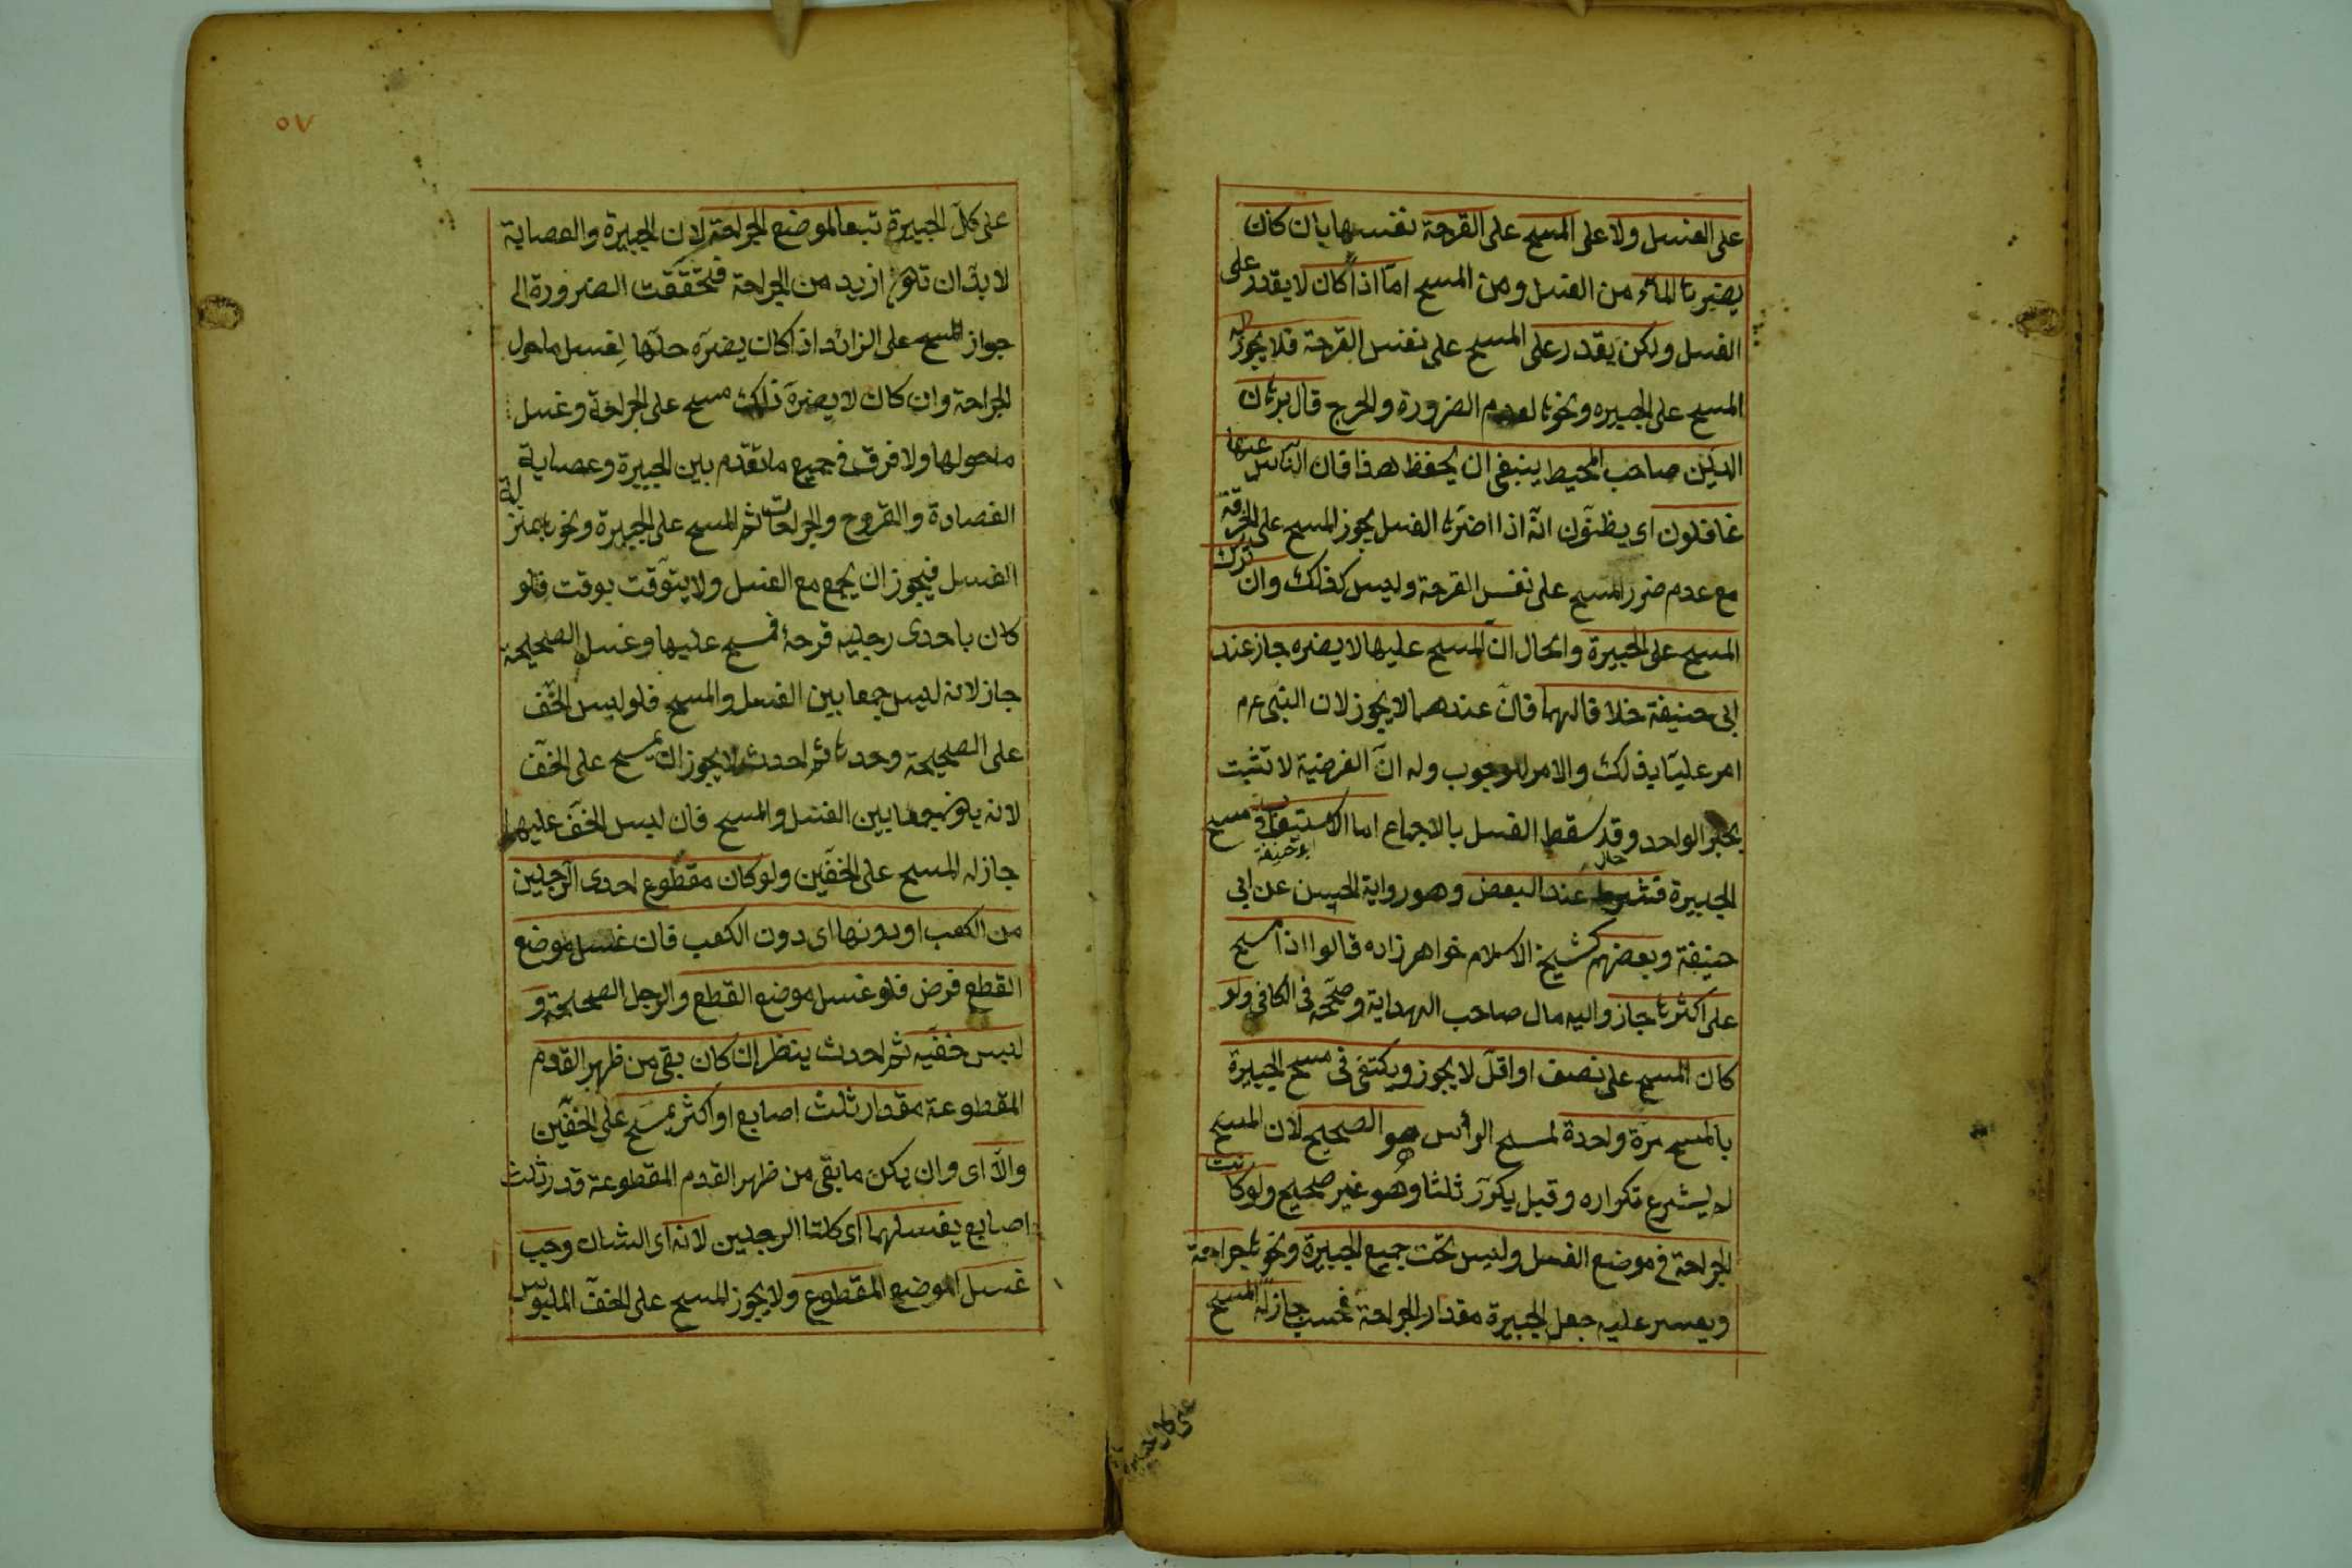 على الغسل ولا على المسح على القرحة نفسها بان كان
يضرها الماء من الغسل ومن المسح اما اذا كان لا يقدر على
الغسل ولكن يقدر على المسح على نفس القرحة فلا يجوز له
المسح على الجبيره ونحوها لعدم الضرورة والحرج قال برهان
الدين صاحب المحيط ينبغى ان يحفظ هذا فان الناس عنها
غافلون اى يظنون انه اذا اضرها الغسل يجوز المسح على الخرقة
مع عدم ضرر المسح على نفس القرحة وليس كذلك وان ترك
المسح على الجبيرة والحال ان المسح عليها لا يضره جاز عند
ابى حنيفة خلافا لهما فان عندهما لا يجوز لان النبى عم
امر عليا بذلك والامر للوجوب وله ان الفرضية لا تثبت
بخبر الواحد وقد سقط الغسل بالاجماع اما الاستيعاب فى مسح
الجبيرة فشرط عند البعض وهو رواية الحسن عن ابى
حنيفة وبعضهم كشيخ الاسلام خواهر زاده قالوا اذا مسح
على اكثرها جاز واليه مال صاحب الهداية وصححه فى الكافى ولو
كان المسح على نصف او اقل لا يجوز ويكتفى فى مسح الجبيرة
بالمسح مرة واحدة لمسح الرأس هو الصحيح لان المسح
لم يشرع تكراره وقيل يكرر ثلثا وهو غير صحيح ولو كانت
الجراحة فى موضع الغسل وليس تحت جميع الجبيرة ونحوها جراحة
ويعسر عليه جعل الجبيرة مقدار الجراحة فحسب جاز له المسح
٥٧
على كل الجبيرة تبعا لموضع الجراحة لان الجبيرة والعصابة
لا بد ان تكون ازيد من الجراحة فتحققت الضرورة الى
جواز المسح على الزائد اذا كان يضره حلها لغسل ما حول
الجراحة وان كان لا يضره ذلك مسح على الجراحة وغسل
ما حولها ولا فرق فى جميع ما تقدم بين الجبيرة وعصابة
الفصادة والقروح والجراحات ثم المسح على الجبيرة ونحوها بمنزلة
الغسل فيجوز ان يجمع مع الغسل ولا يتوقت بوقت فلو
كان باحدى رجليه قرحة فمسح عليها وغسل الصحيحة
جاز لانه ليس جمعا بين الغسل والمسح فلو لبس الخف
على الصحيحة وحدها ثم احدث لا يجوز ان يمسح على الخف
لانه يكون جمعا بين الغسل والمسح فان لبس الخف عليهما
جاز له المسح على الخفين ولو كان مقطوع احدى الرجلين
من الكعب او دونها اى دون الكعب فان غسل موضع
القطع فرض فلو غسل موضع القطع والرجل الصحيحة و
لبس خفيه ثم احدث ينظر ان كان بقى من ظهر القدم
المقطوعة مقدار ثلث اصابع او اكثر يمسح على الخفين
والا اى وان يكن ما بقى من ظهر القدم المقطوعة قدر ثلث
اصابع يغسلهما اى كلتا الرجلين لانه اى الشان وجب
غسل الموضع المقطوع ولا يجوز المسح على الخف الملبوس